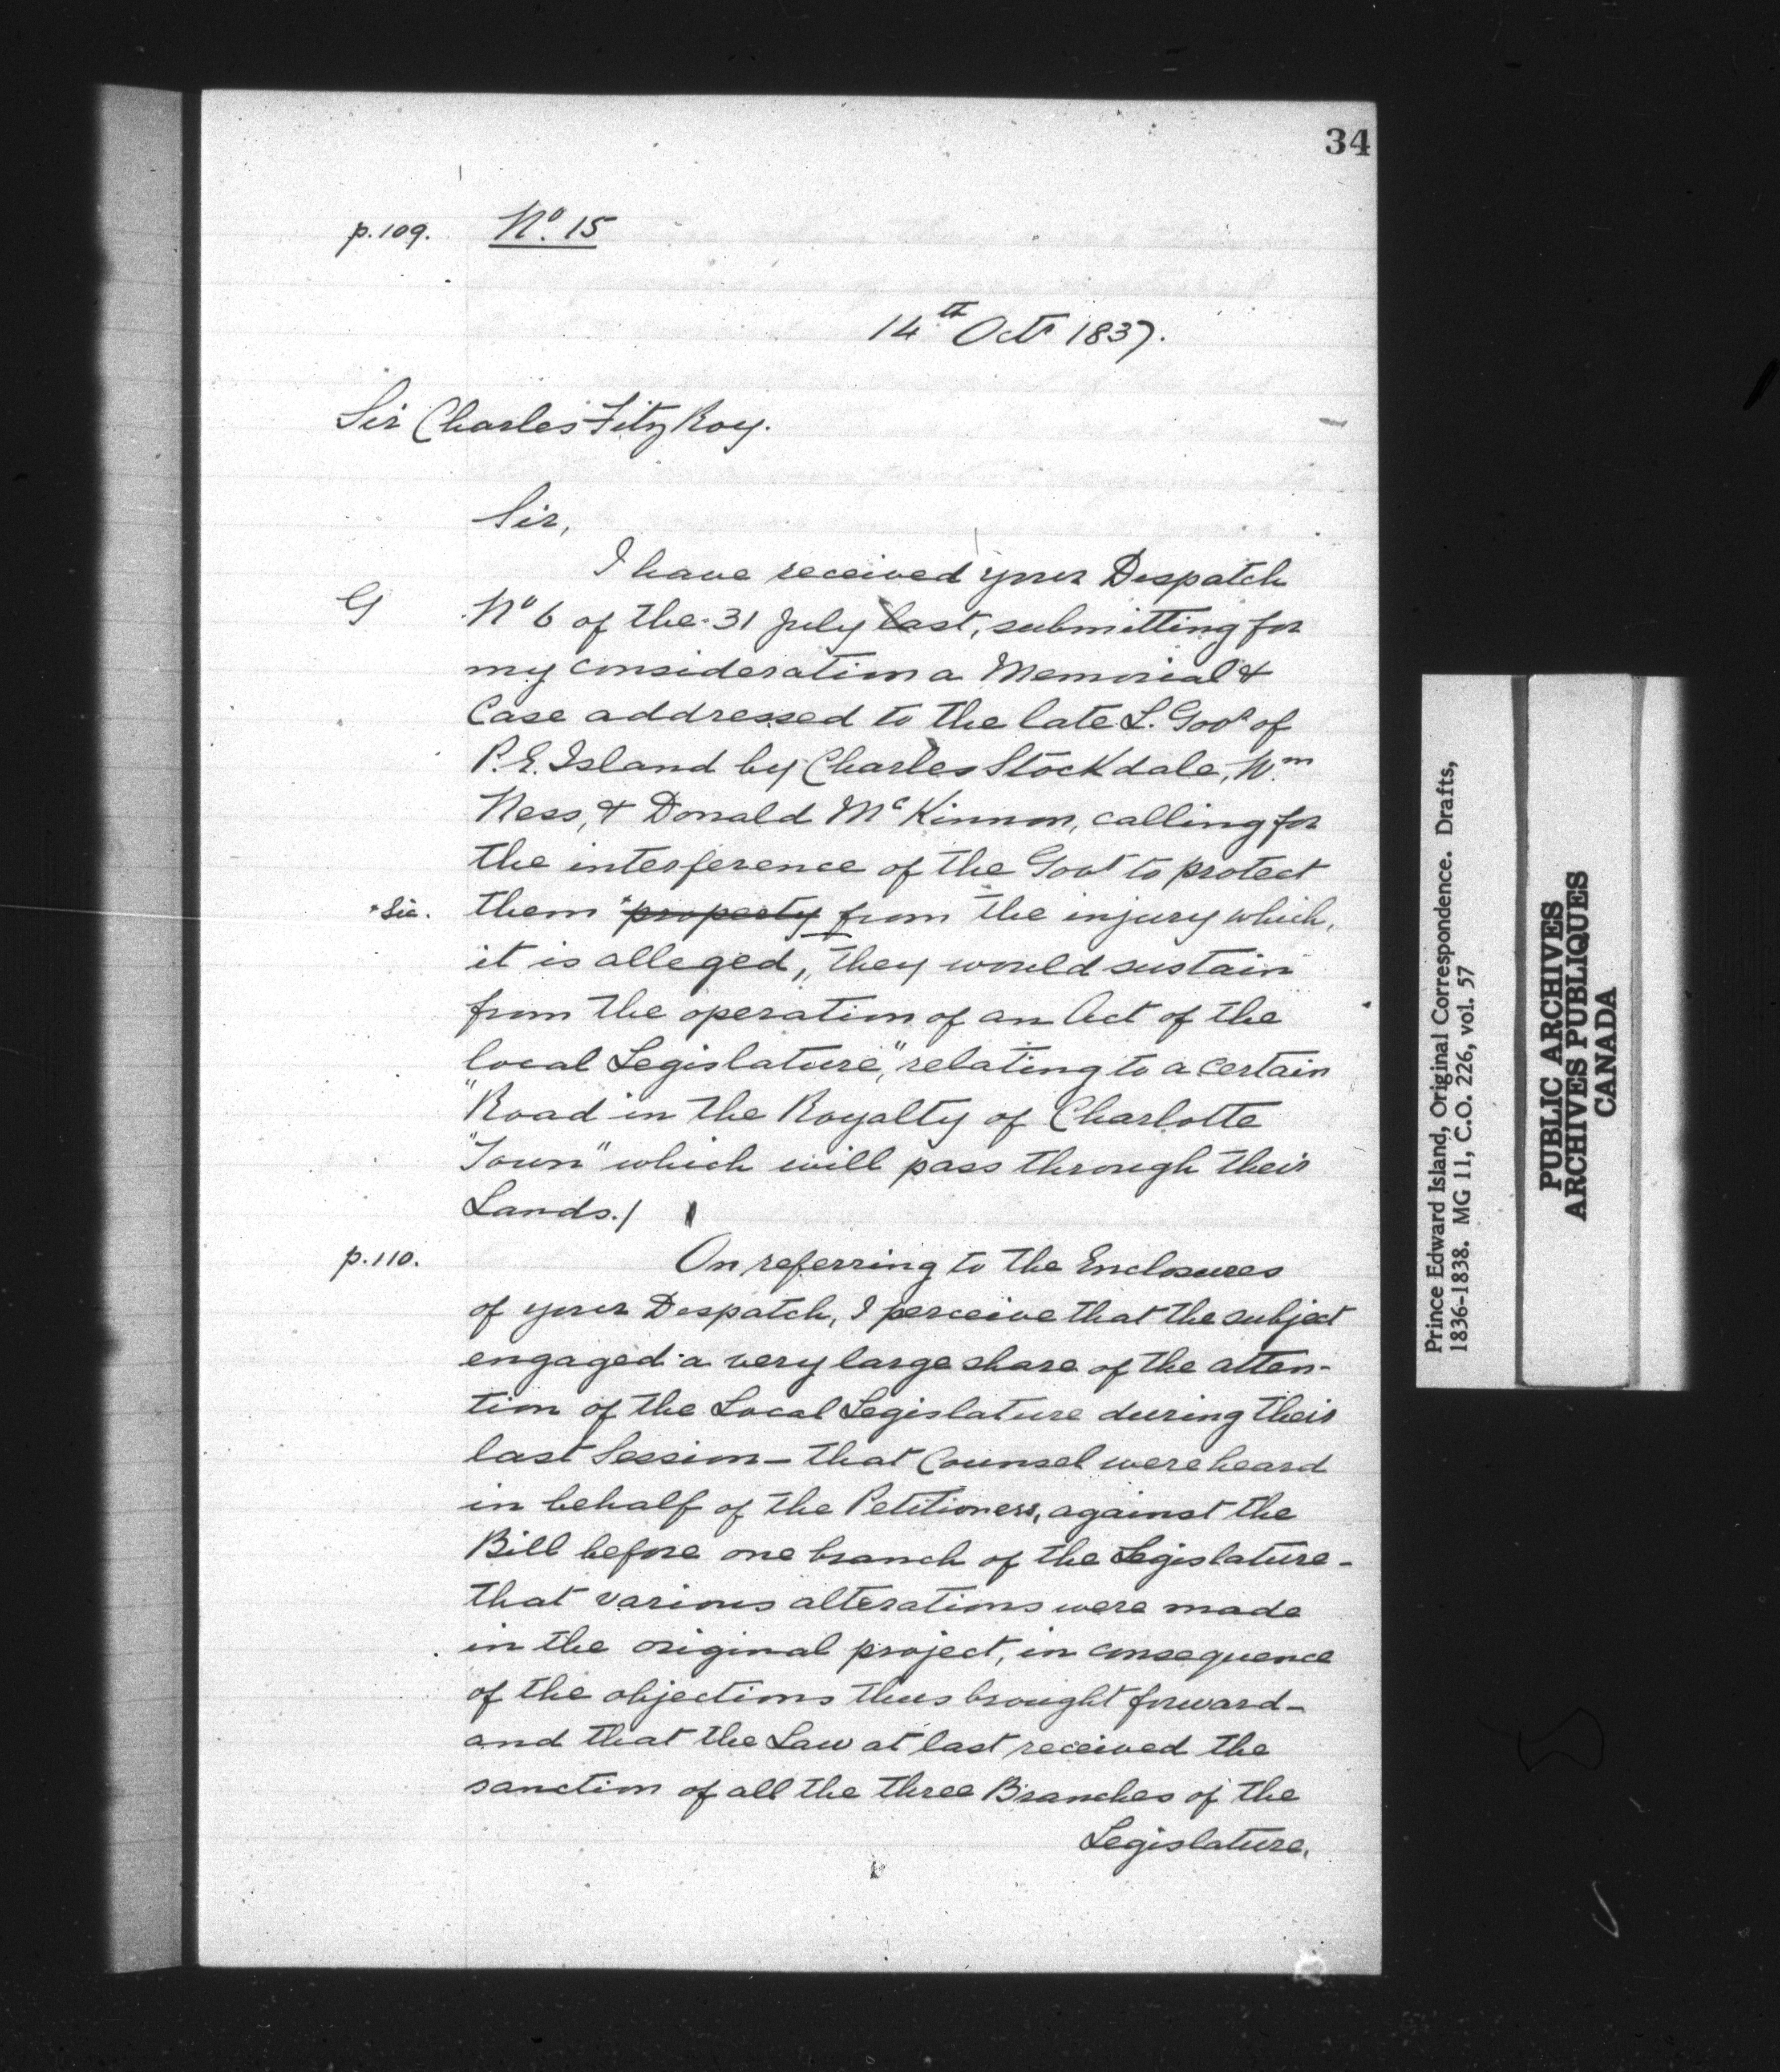 34
p.109. Nº. 15
14th Octr 1837.
Sir Charles FitzRoy.
Sir,
I have received your Despatch
G Nº 6 of the 31 July last, submitting for
my consideration a Memorial &
Case addressed to the late L. Govr of
P.E. Island by Charles Stockdale, Wm
Ness, & Donald McKinnon, calling for
the interference of the Govt to protect
*Sic. them *property from the injury which,
it is alleged, they would sustain
from the operation of an Act of the
local Legislature, "relating to a certain
"Road in the Royalty of Charlotte
"Town" which will pass through their
Lands./
p.110. On referring to the Enclosures
of your Despatch, I perceive that the subject
engaged a very large share of the atten-
tion of the Local Legislature during their
last Session – that Counsel were heard
in behalf of the Petitioners, against the
Bill before one branch of the Legislature –
that various alterations were made
in the original project, in consequence
of the objections thus brought forward –
and that the Law at last received the
sanction of all the three Branches of the
Legislature.
Prince Edward Island, Original Correspondence. Drafts,
1836-1838. MG 11, C.O. 226, vol. 57
PUBLIC ARCHIVES
ARCHIVES PUBLIQUES
CANADA